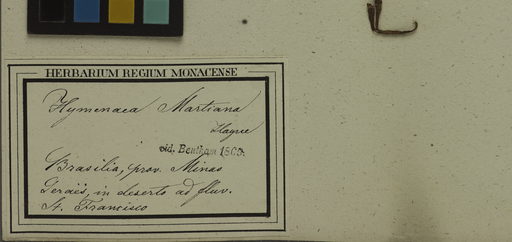 HERBARIUM REGIUM MONACENSE
Hymenaea Martiana
Hayne
vid. Bentham 1869.
Brasilia, prov. Minas
Geraës, in deserto ad fluv.
St. Francisco